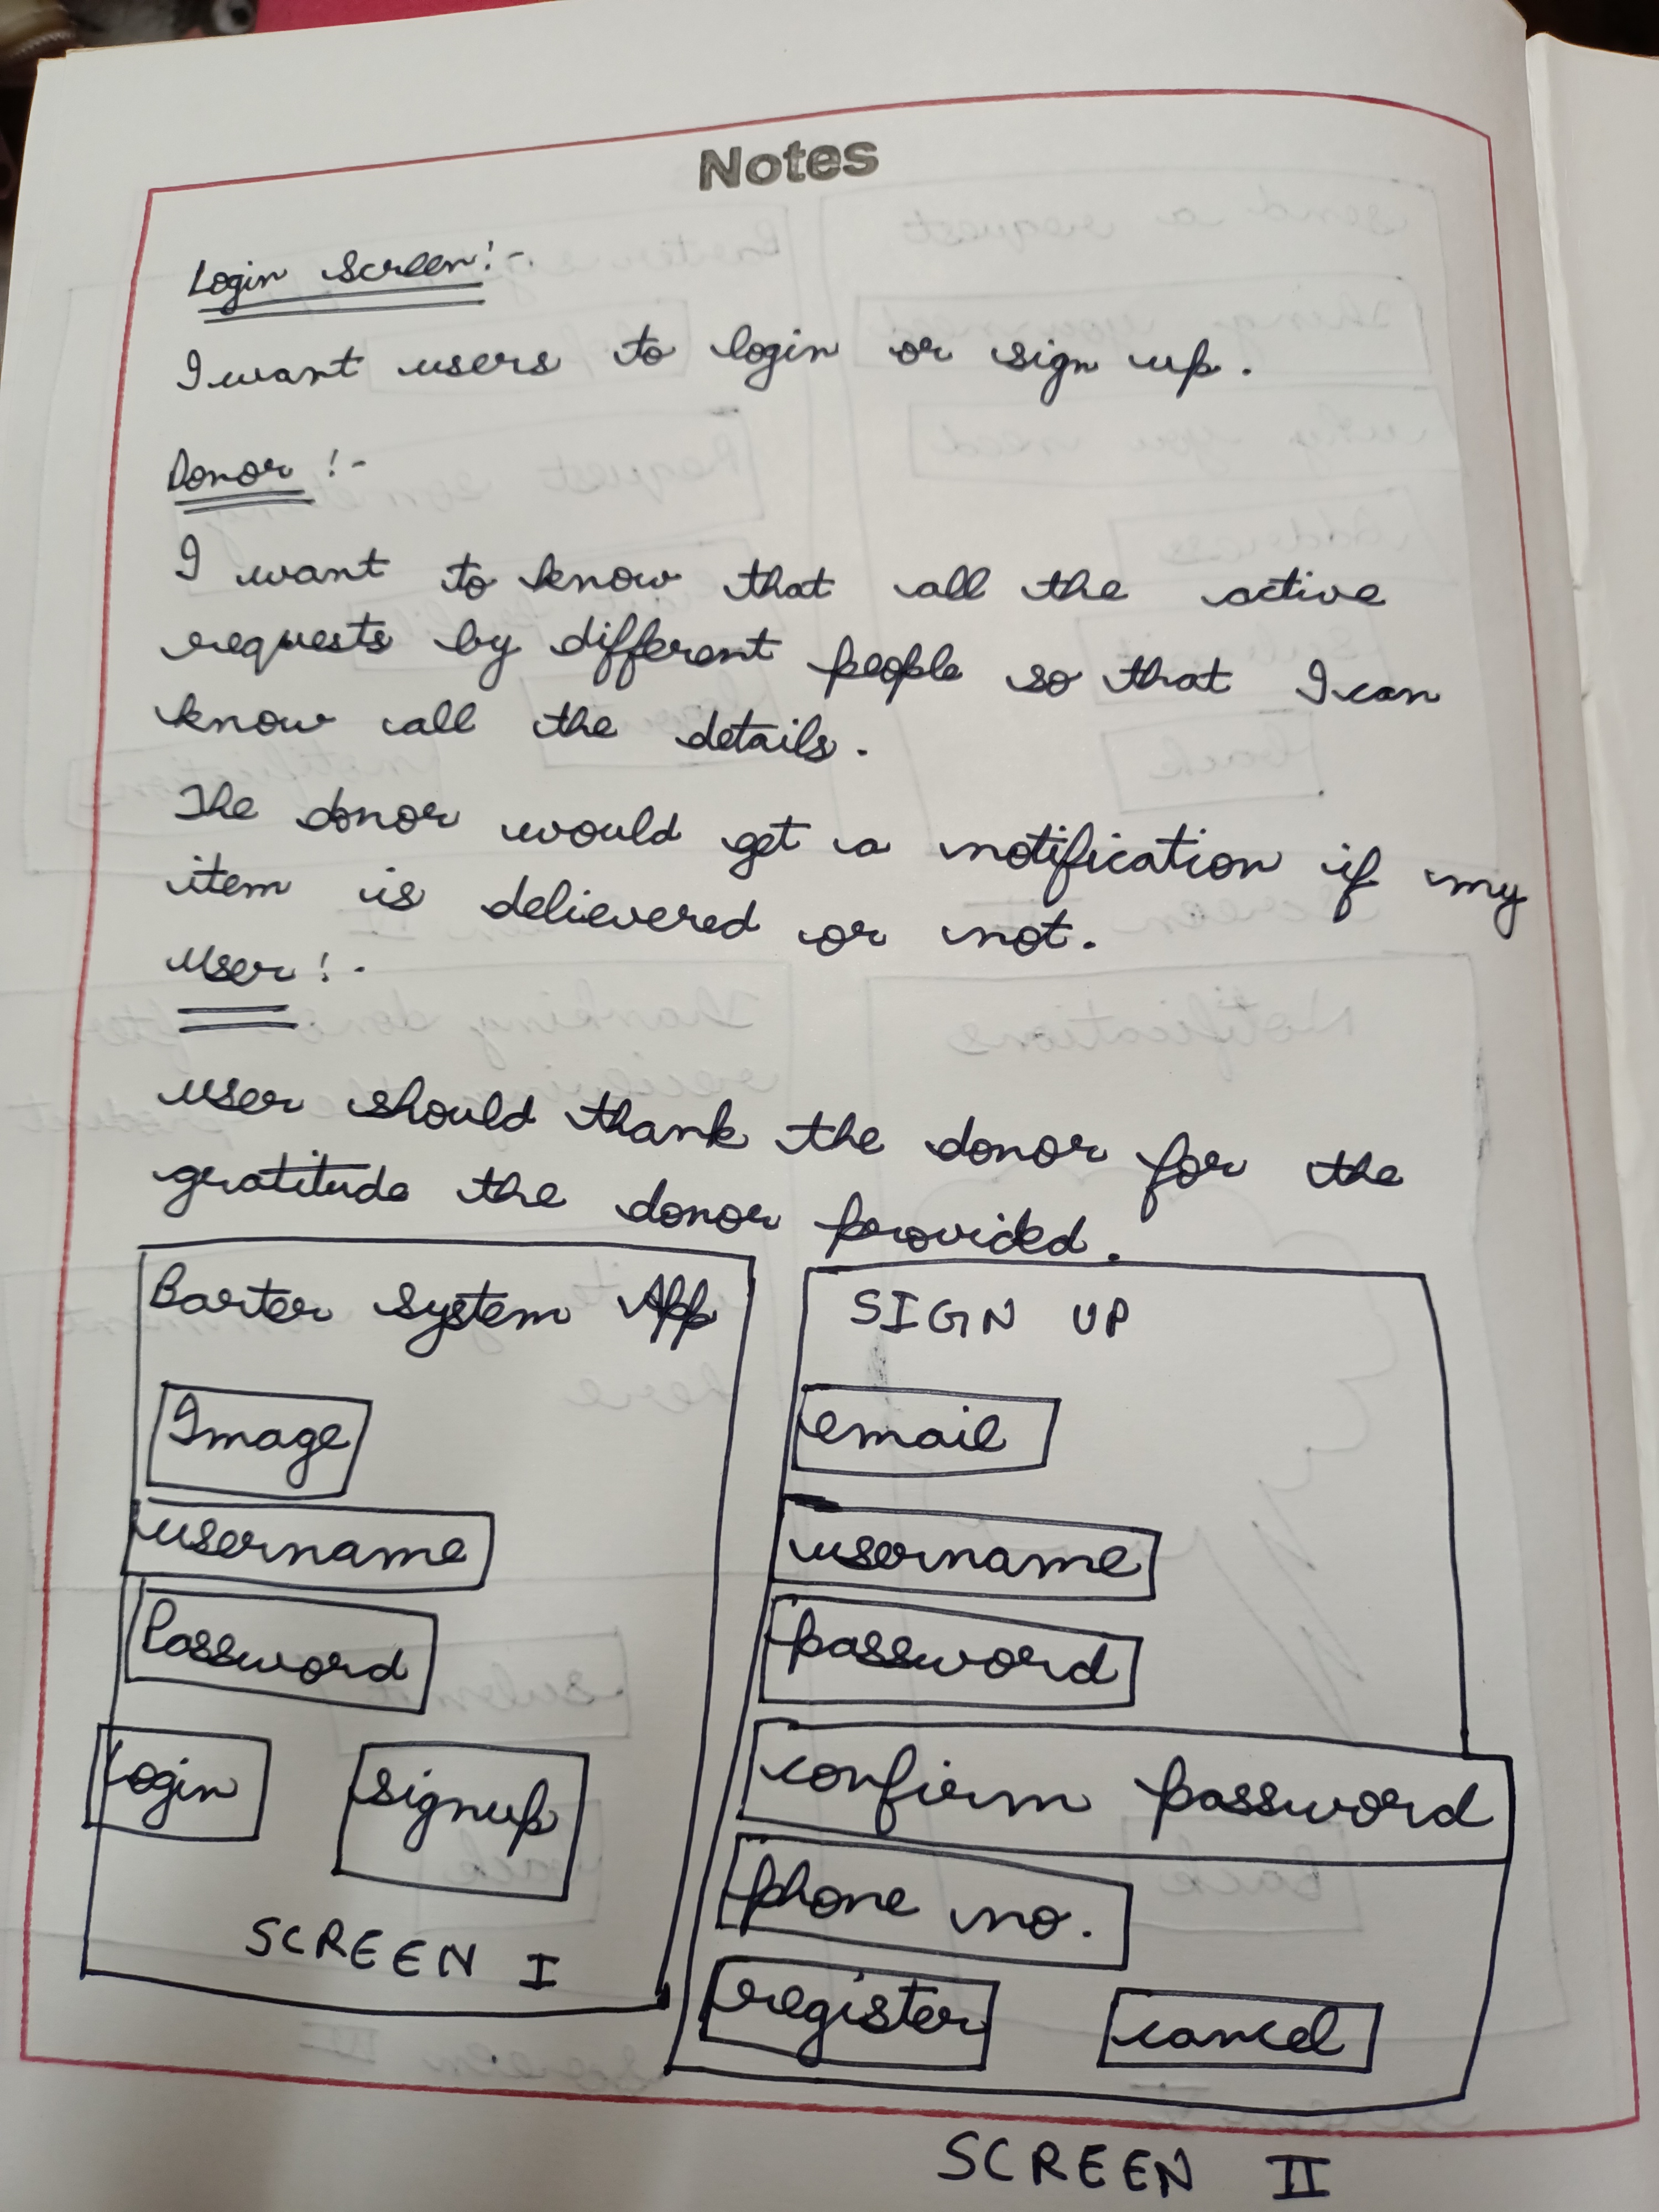 Notes
Login Screen:-
I want users to login or sign up.
Donor :-
I want to know that all the active
requests by different people so that I can
know all the details.
The donor would get a notification if my
item is delievered or not.
User :-
user should thank the donor for the
gratitude the donor provided.
Barter System App
Image
username
Password
login signup
SCREEN I
SIGN UP
email
username
password
confirm password
phone no.
register cancel
SCREEN II